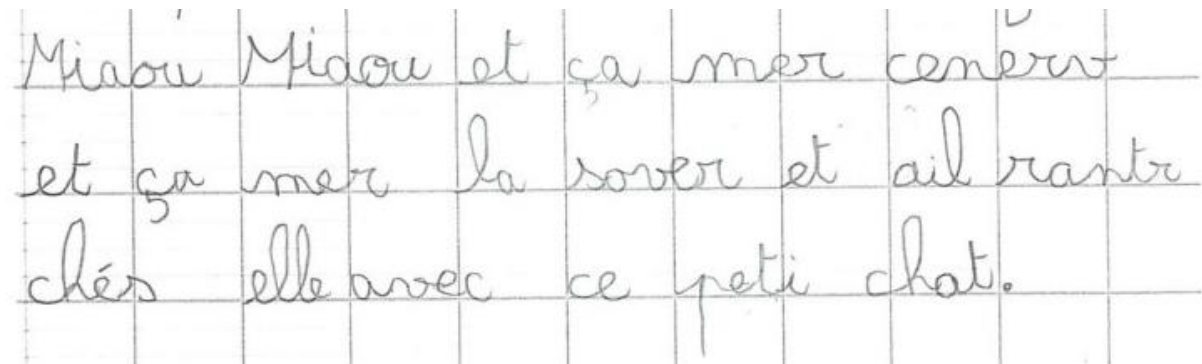 Miaou Miaou et ça mer cenerv
et ça mer la sover et ail rantr
chés elle avec ce peti chat.